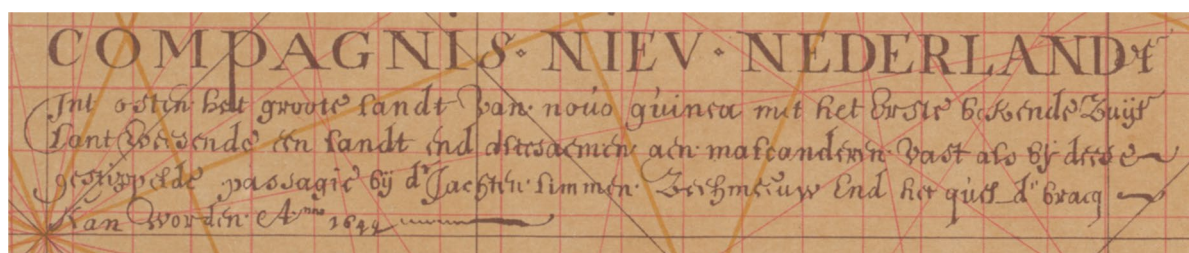 COMPAGNIS · NIEV · NEDERLANDT
Int osten het groote landt van nouo guinea mit het Erste bekende Zuijt
lant Wesende een landt end altesaemen aen malcanderen vast als bij deese
gestippelde passagie bij d' Jachten Limmen Zeehmeeuw End het quel d' bracq
Kan worden Anno 1644